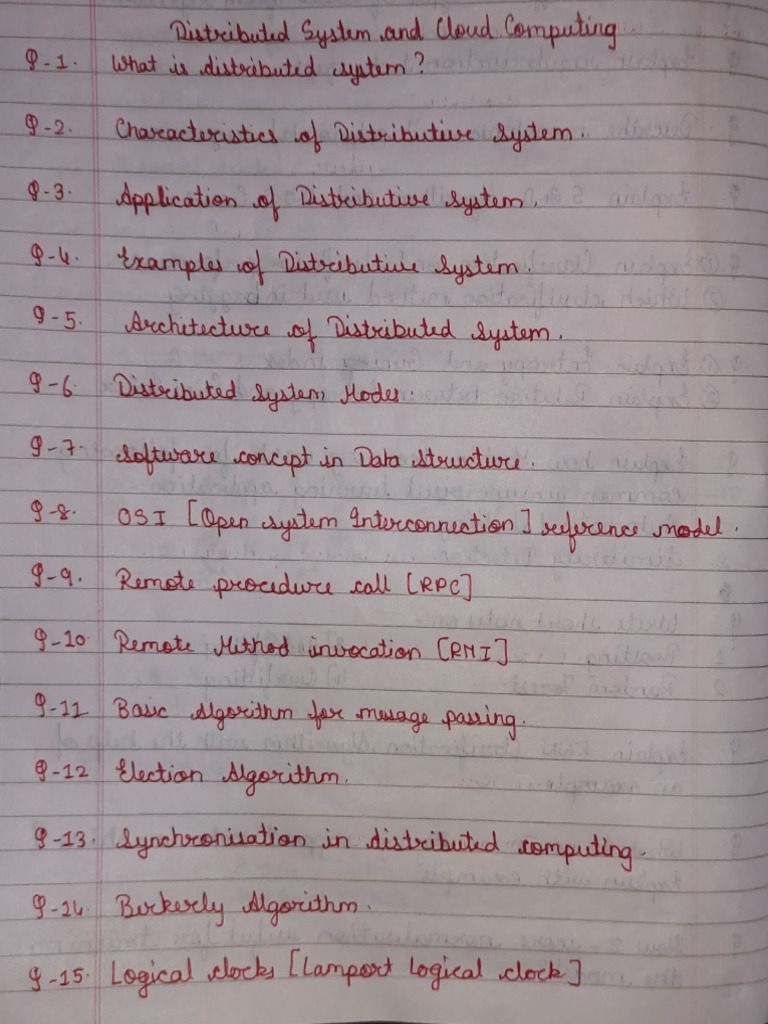 Distributed System and Cloud Computing
Q-1. What is distributed system?
Q-2. Characteristics of Distributive System.
Q-3. Application of Distributive System.
Q-4. Examples of Distributive System.
Q-5. Architecture of Distributed System.
Q-6. Distributed System Modes.
Q-7. Software concept in Data Structure.
Q-8. OSI [Open System Interconnection] reference model.
Q-9. Remote procedure call [RPC]
Q-10. Remote Method invocation [RMI]
Q-11 Basic Algorithm for message passing.
Q-12 Election Algorithm.
Q-13. Synchronisation in distributed computing.
Q-14. Berkerly Algorithm.
Q-15. Logical clocks [Lamport Logical clock]